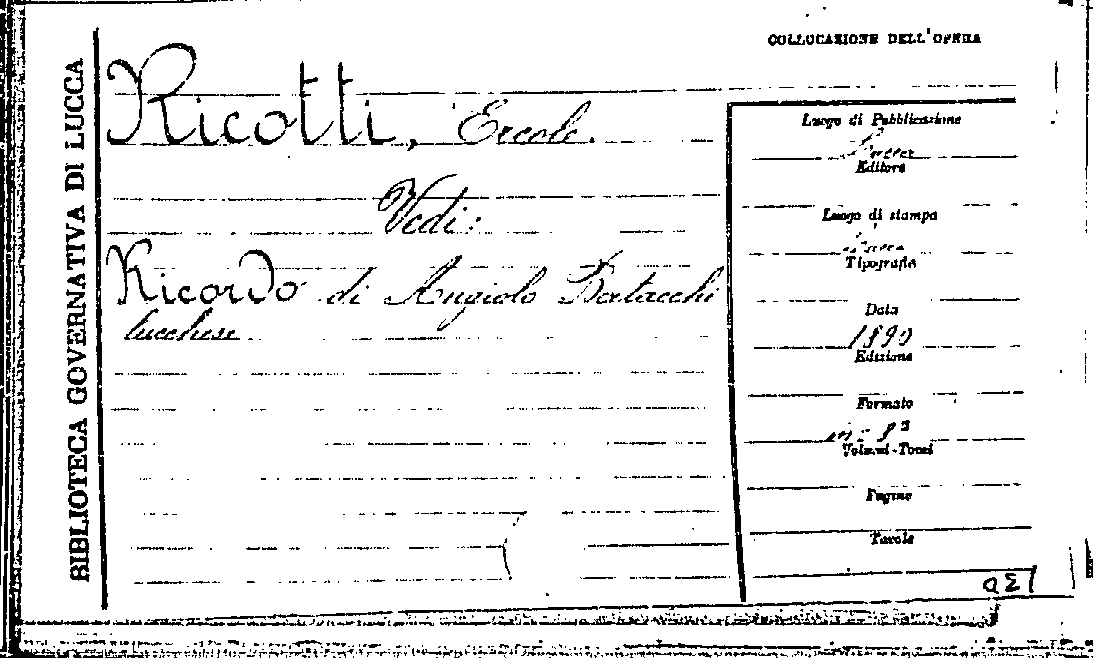 BIBLIOTECA GOVERNATIVA DI LUCCA
COLLOCAZIONE DELL'OPERA
Ricotti, Ercole.
Vedi:
Ricordo di Angiolo Bertacchi
lucchese
Luogo di Pubblicazione
Lucca
Editore
Luogo di stampa
Lucca
Tipografia
Data
1890
Edizione
Formato
in-8º
Volumi-Tomi
Pagine
Tavole